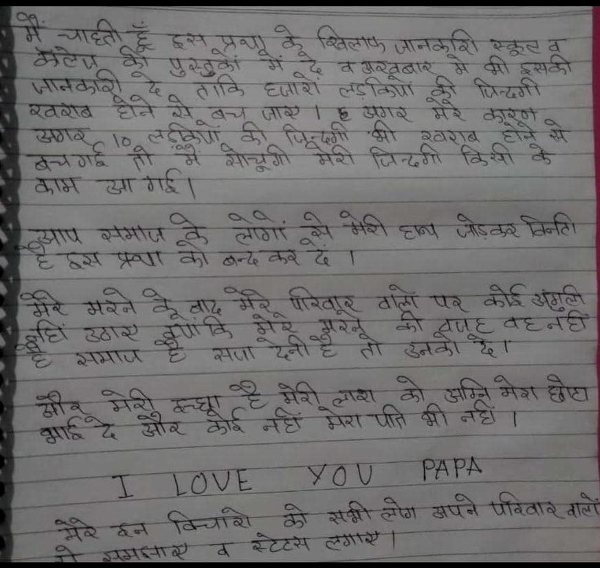 मैं चाहती हूँ इस प्रथा के खिलाफ जानकारी स्कूल व
कॉलेज की पुस्तकों में दे व अखबार मे भी इसकी
जानकारी दे ताकि हजारो लड़कियो की जिन्दगी
खराब होने से बच जाए। अगर मेरे कारण
अगर 10 लड़कियो की जिन्दगी भी खराब होने से
बच गई तो मैं सोचूगी मेरी जिन्दगी किसी के
काम आ गई।
आप समाज के लोगों से मेरी हाथ जोड़कर विनति
है इस प्रथा को बन्द कर दें।
मेरे मरने के बाद मेरे परिवार वालो पर कोई अंगुली
नहिं उठाए क्योकि मेरे मरने की वजह वह नहीं
है समाज है सजा देनी है तो उनको दे।
और मेरी इच्छा है मेरी लाश को अग्नि मेरा छोटा
भाई दे और कोई नहीं मेरा पति भी नहीं।
I LOVE YOU PAPA
मेरे इन विचारो को सभी लोग अपने परिवार वालो
मे समझाए व स्टेटस लगाए।